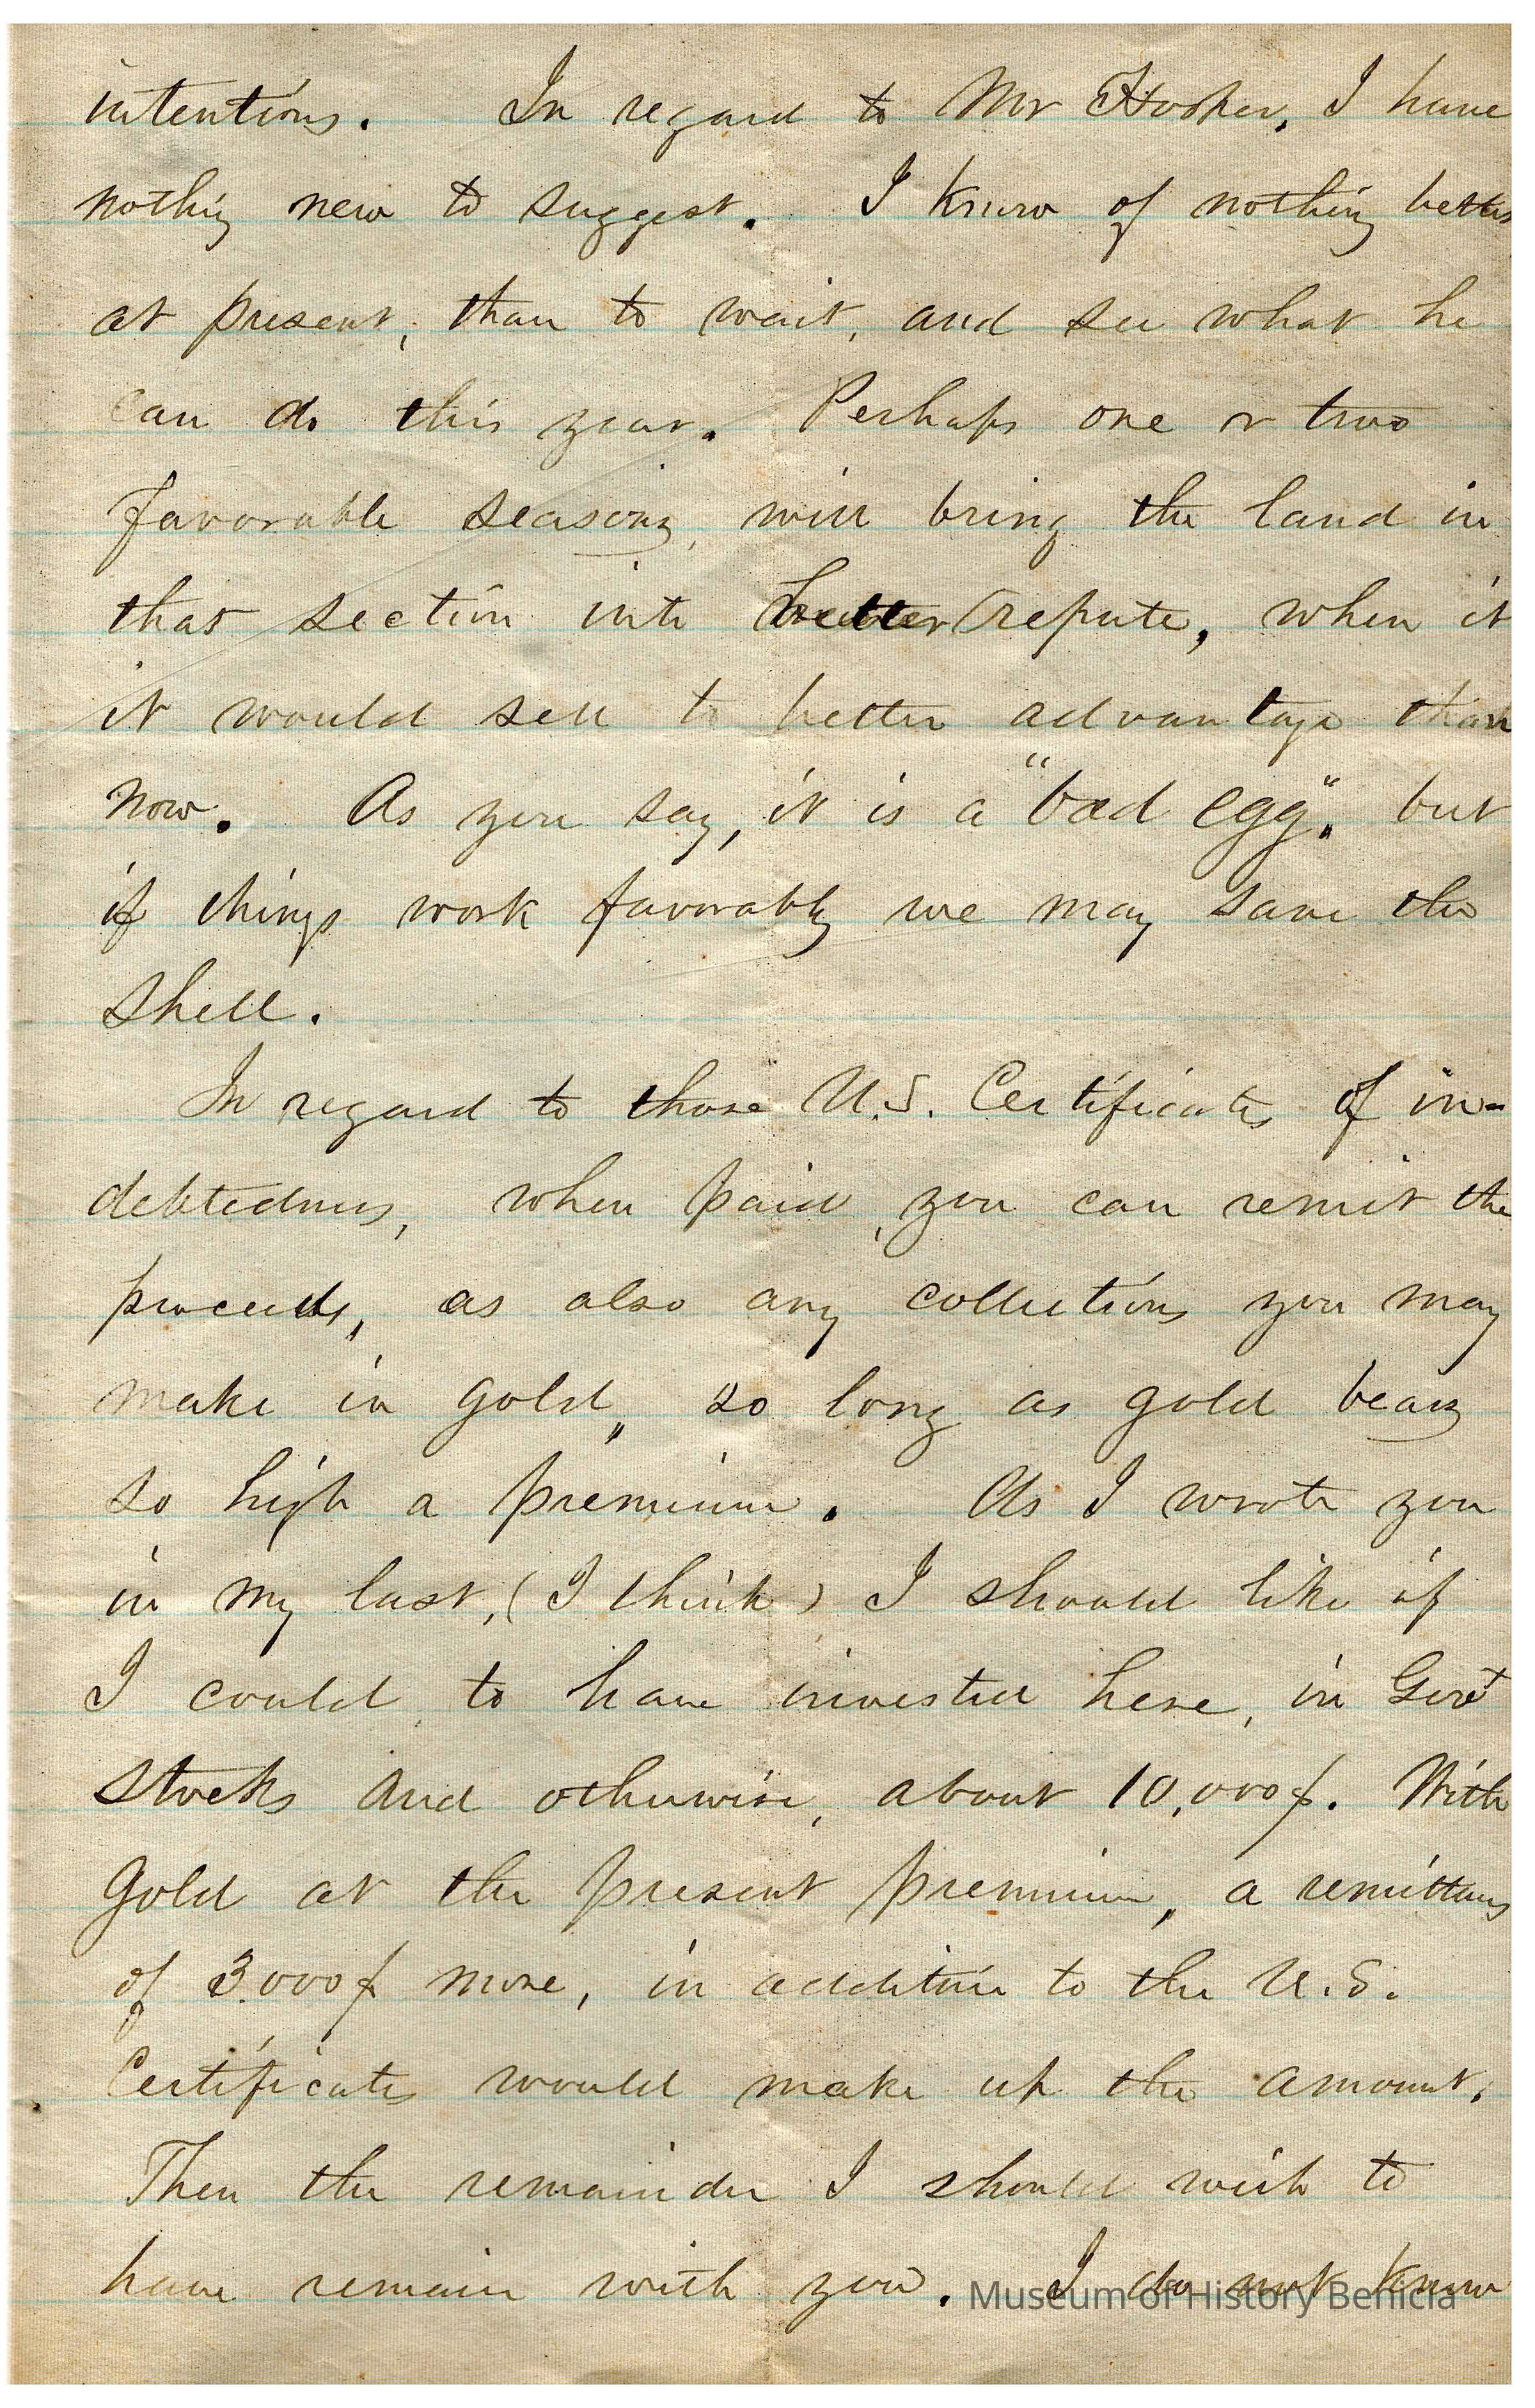 intentions. In regard to Mr Hooker, I have
nothing new to suggest. I know of nothing better
at present, than to wait, and see what he
can do this year. Perhaps one or two
favorable seasons, will bring the land in
that section into better repute, when it
it would sell to better advantage than
now. As you say, it is a "bad egg", but
if things work favorably we may save the
shell.
In regard to those U.S. Certificates of in-
debtedness, when paid, you can remit the
proceeds, as also any collections you may
make in gold, so long as gold bears
so high a premium. As I wrote you
in my last, (I think) I should like if
I could, to have invested here, in Govt
stocks and otherwise, about 10,000$. With
Gold at the present premium, a remittance
of 3.000$ more, in addition to the U.S.
Certificates would make up the amount.
Then the remainder I should wish to
have remain with you. I do not know
Museum of History Benicia